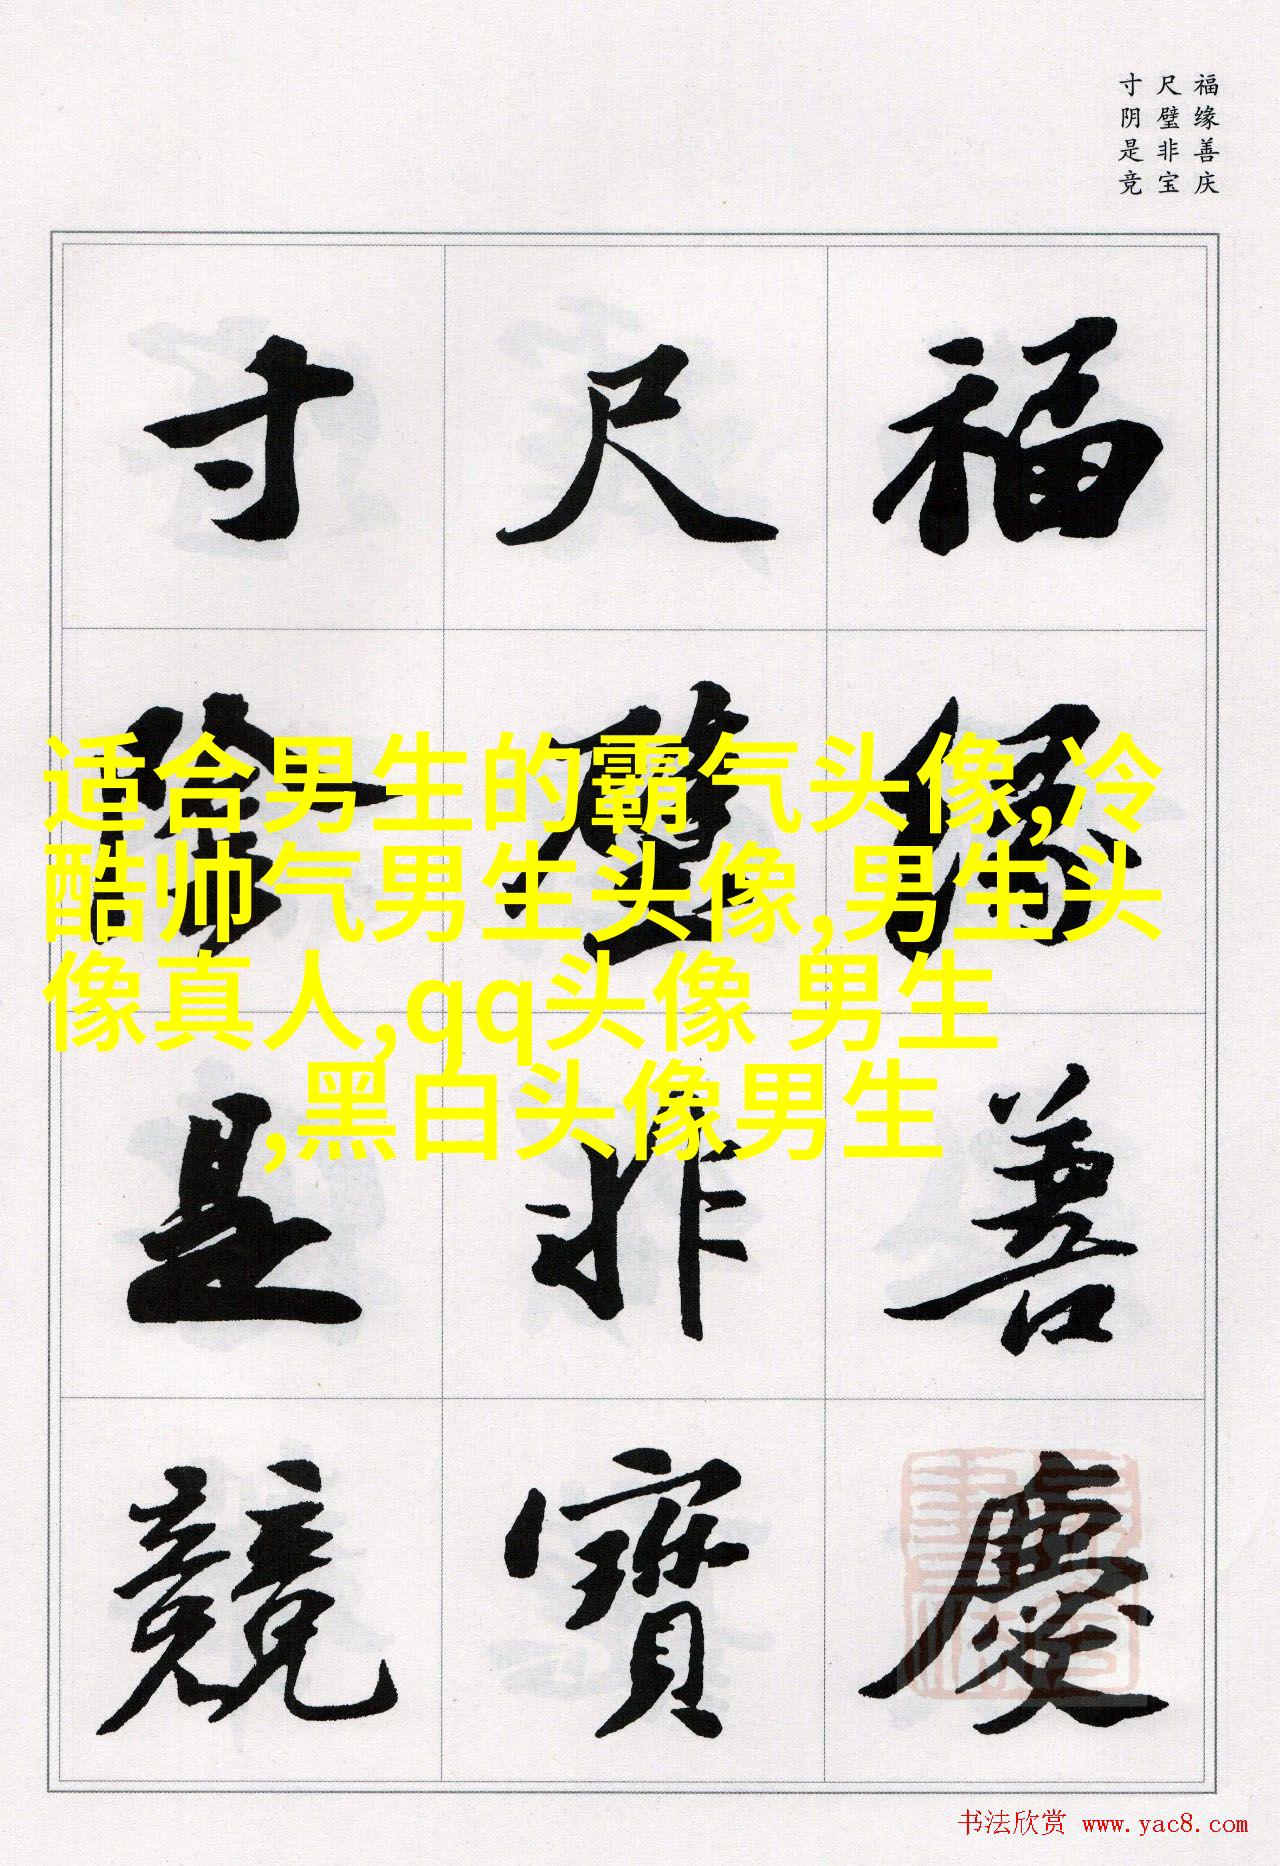 福缘善庆
尺璧非宝
寸阴是竞
福緣善慶
尺璧非寶
寸陰是競
适合男生的霸气头像,冷
酷帅气男生头像,男生头
像真人,qq头像 男生
,黑白头像男生
书法欣赏 www.yac8.com